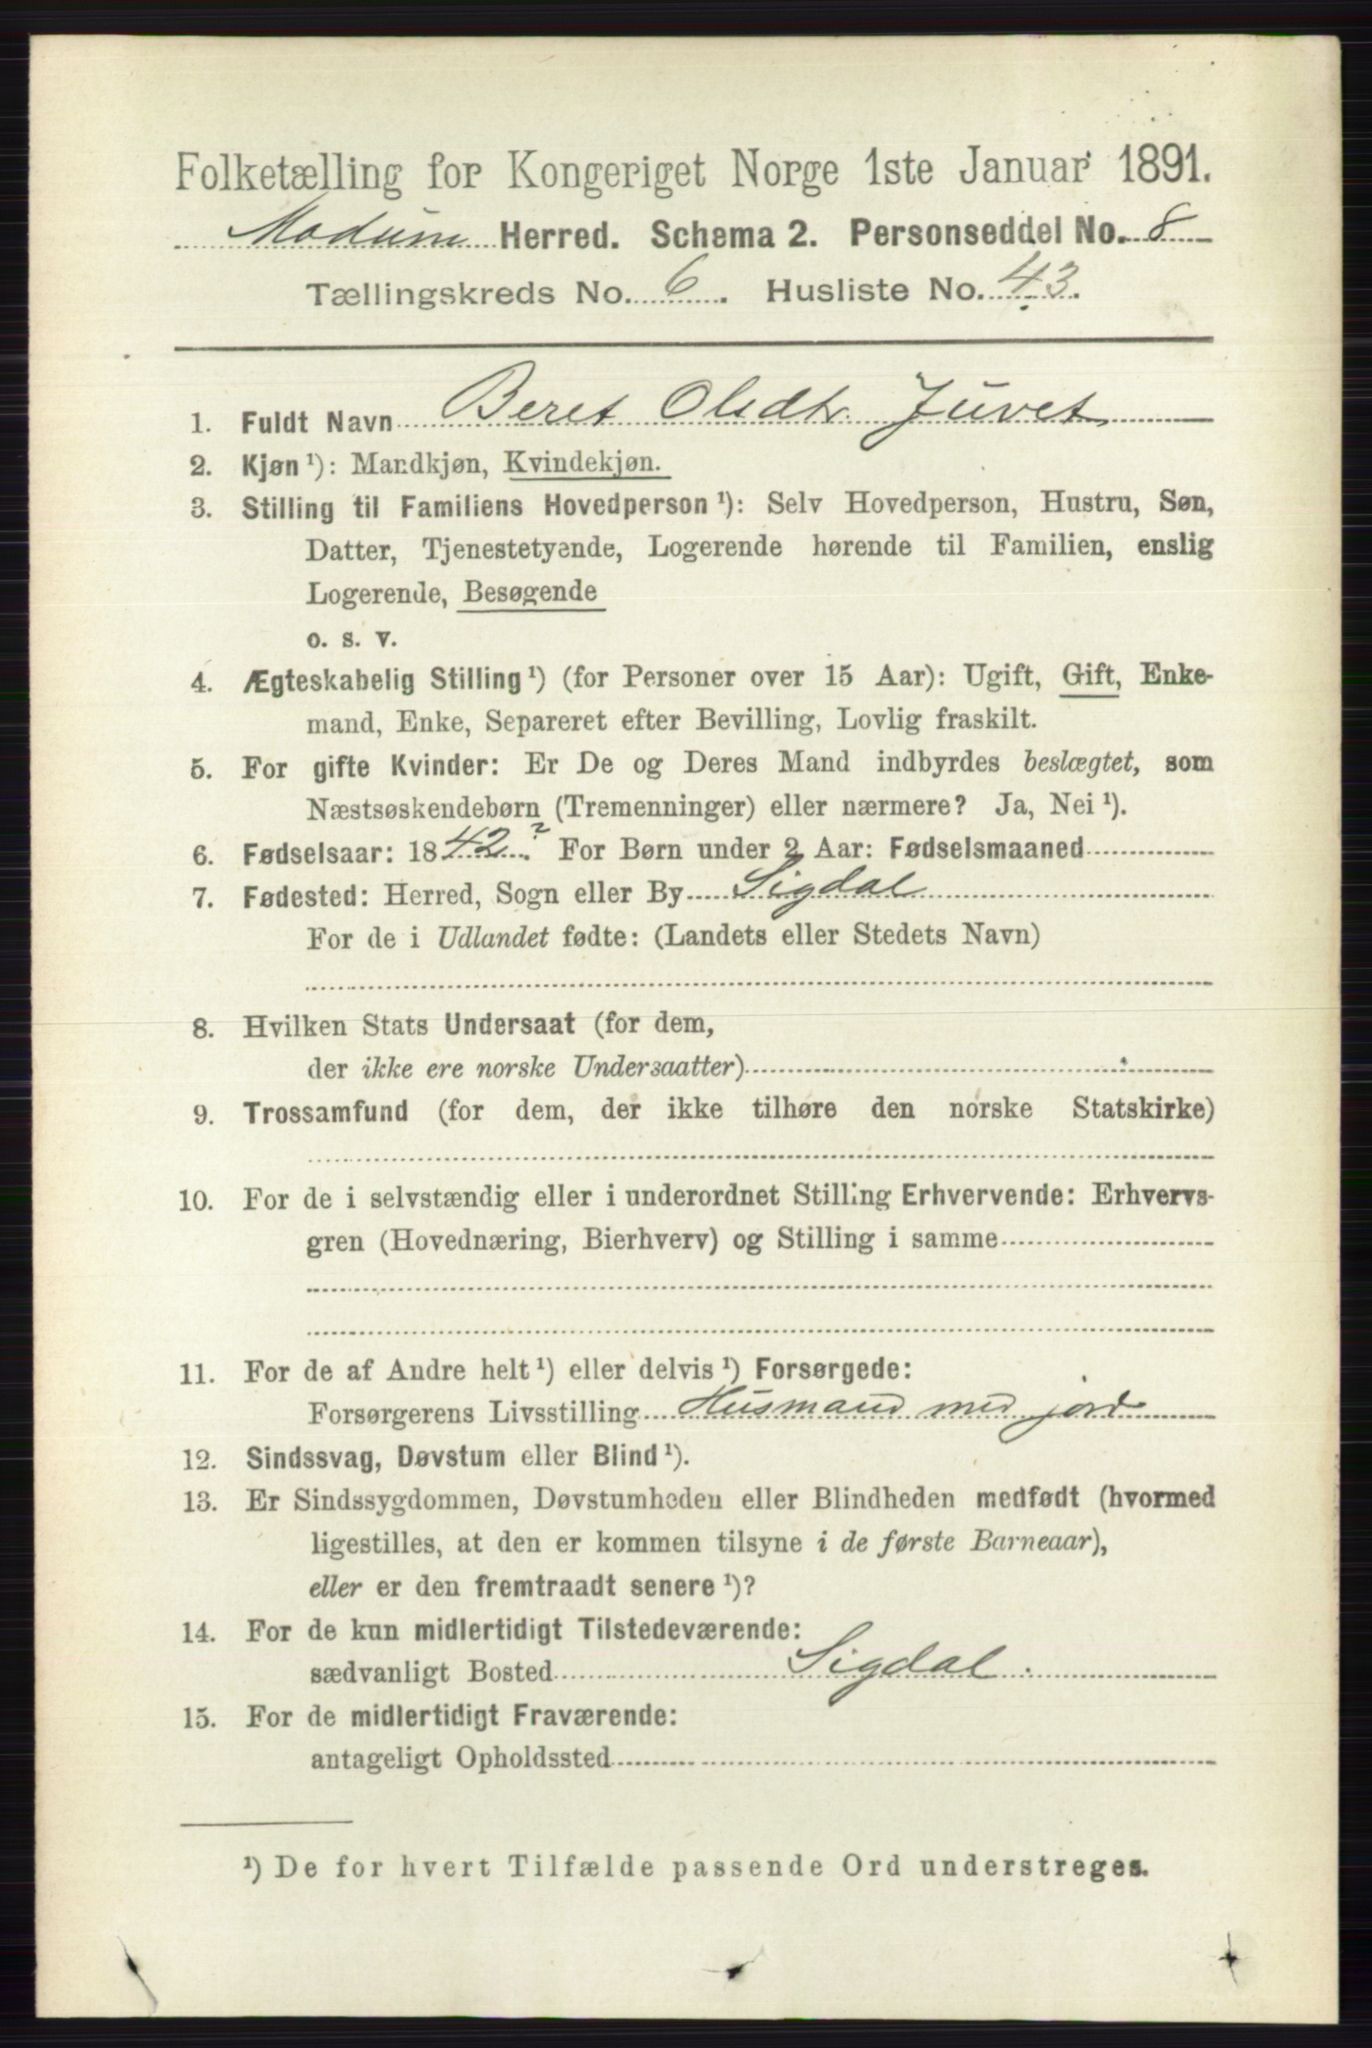 Folketælling for Kongeriget Norge 1ste Januar 1891.
Modum Herred. Schema 2. Personseddel No. 8
Tællingskreds No. 6. Husliste No. 43.
1. Fuldt Navn Beret Olsdtr. Juvet
2. Kjøn ¹): Mandkjøn, Kvindekjøn.
3. Stilling til Familiens Hovedperson ¹): Selv Hovedperson, Hustru, Søn,
Datter, Tjenestetyende, Logerende hørende til Familien, enslig
Logerende, Besøgende
o. s. v.
4. Ægteskabelig Stilling ¹) (for Personer over 15 Aar): Ugift, Gift, Enke-
mand, Enke, Separeret efter Bevilling, Lovlig fraskilt.
5. For gifte Kvinder: Er De og Deres Mand indbyrdes beslægtet, som
Næstsøskendebørn (Tremenninger) eller nærmere? Ja, Nei ¹).
6. Fødselsaar: 1842.? For Børn under 2 Aar: Fødselsmaaned
7. Fødested: Herred, Sogn eller By Sigdal
For de i Udlandet fødte: (Landets eller Stedets Navn)
8. Hvilken Stats Undersaat (for dem,
der ikke ere norske Undersaatter)
9. Trossamfund (for dem, der ikke tilhøre den norske Statskirke)
10. For de i selvstændig eller i underordnet Stilling Erhvervende: Erhvervs-
gren (Hovednæring, Bierhverv) og Stilling i samme
11. For de af Andre helt ¹) eller delvis ¹) Forsørgede:
Forsørgerens Livsstilling Husmand med jord
12. Sindssvag, Døvstum eller Blind ¹).
13. Er Sindssygdommen, Døvstumheden eller Blindheden medfødt (hvormed
ligestilles, at den er kommen tilsyne i de første Barneaar),
eller er den fremtraadt senere ¹)?
14. For de kun midlertidigt Tilstedeværende:
sædvanligt Bosted Sigdal.
15. For de midlertidigt Fraværende:
antageligt Opholdssted
¹) De for hvert Tilfælde passende Ord understreges.